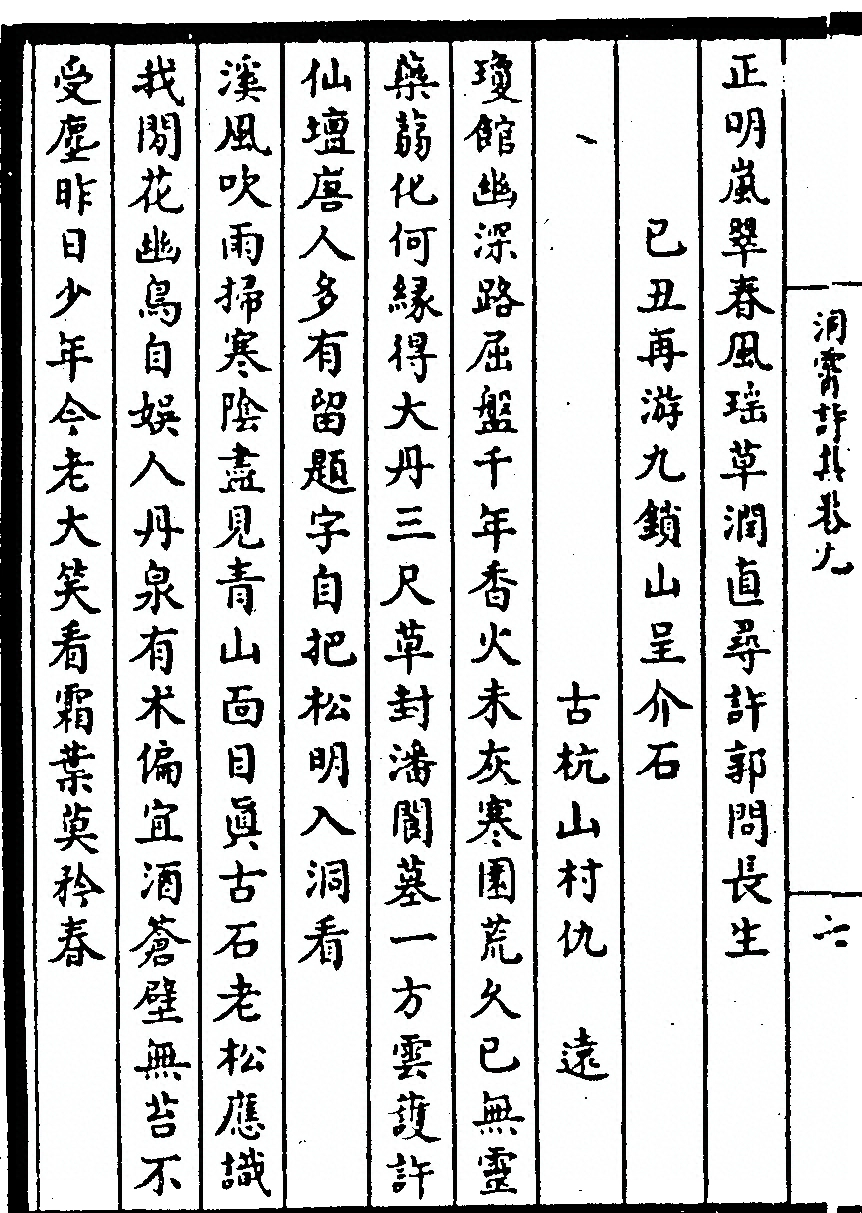 洞霄詩集卷九
六
正明嵐翠春風瑶草潤直尋許郭問長生
已丑再游九鎖山呈介石
古杭山村仇　遠
瓊館幽深路屈盤千年香火未灰寒園荒久已無靈
藥蒻化何緣得大丹三尺草封潘閬墓一方雲護許
仙壇唐人多有留題字自把松明入洞看
溪風吹雨掃寒陰盡見青山面目眞古石老松應識
我閒花幽鳥自娱人丹泉有术偏宜酒蒼壁無苔不
受塵昨日少年今老大笑看霜葉莫矜春